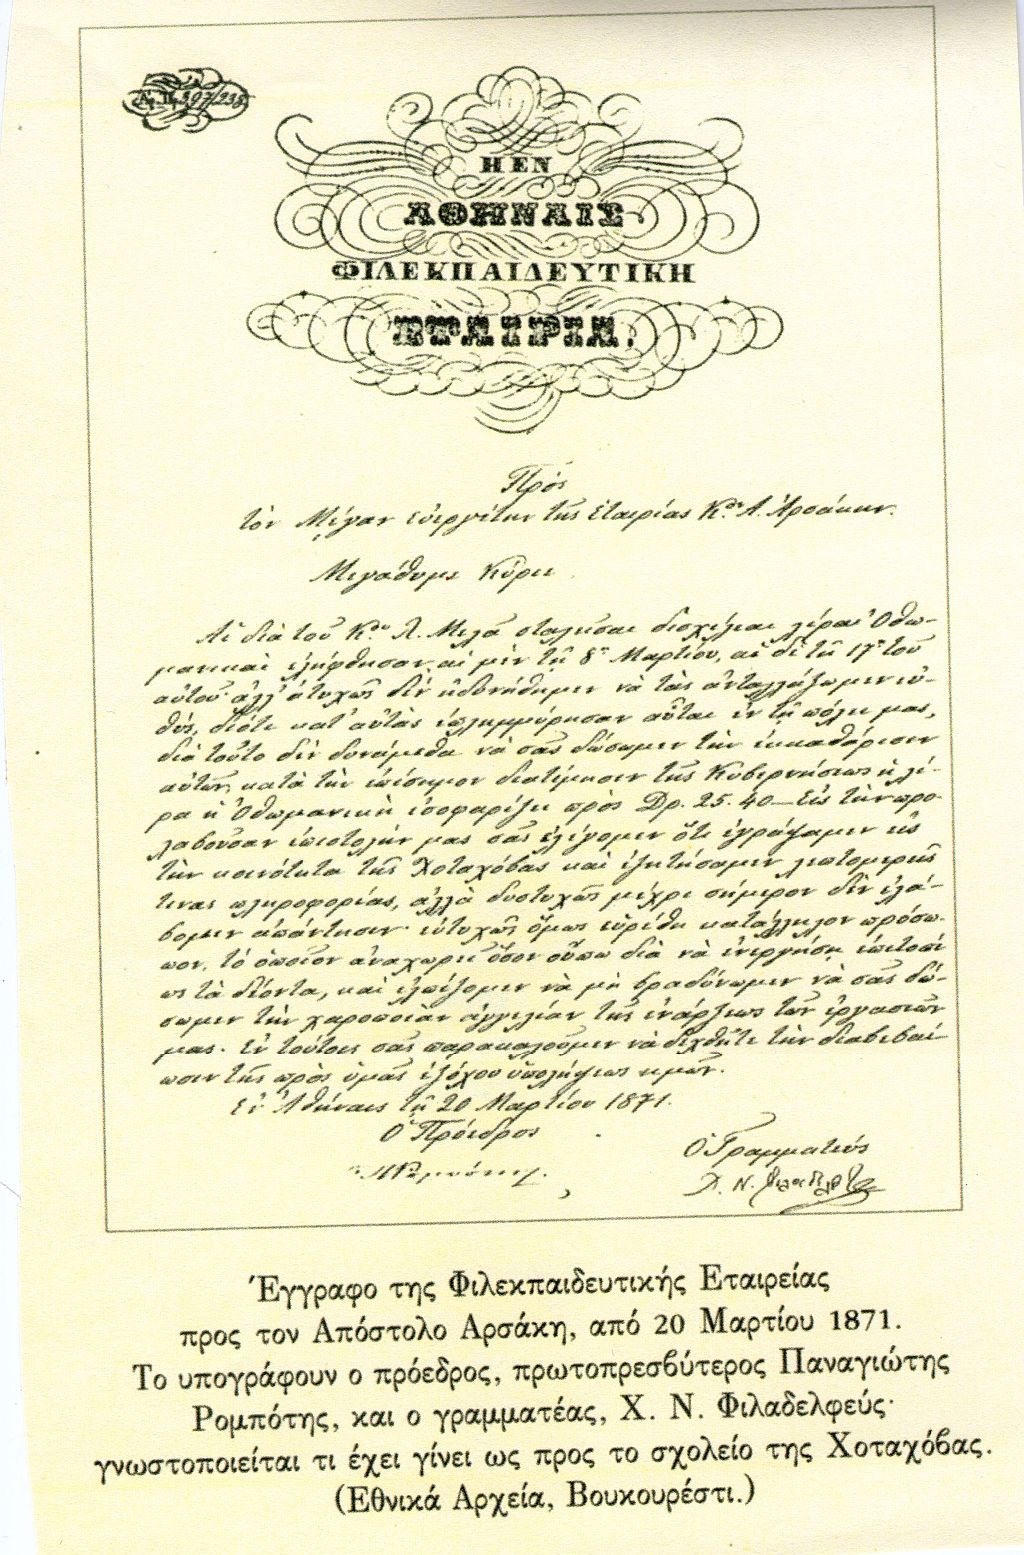 Η ΕΝ
ΑΘΗΝΑΙΣ
ΦΙΛΕΚΠΑΙΔΕΥΤΙΚΗ
ΕΤΑΙΡΙΑ.
Πρὸς
τὸν Μέγαν εὐεργέτην τῆς Ἑταιρίας Κον Α. Ἀρσάκην.
Μεγάθυμε Κύριε
Αἱ διὰ τοῦ Κου Λ. Μελᾶ σταλεῖσαι δισχίλιαι λίραι Ὀθω-
μανικαὶ ἐλήφθησαν, αἱ μὲν τῇ 8ῃ Μαρτίου, αἱ δὲ τῇ 17ῃ τοῦ
αὐτοῦ· ἀλλ' ἀτυχῶς δὲν ἠδυνήθημεν νὰ τὰς ἀνταλλάξωμεν εὐ-
θύς, διότι κατ' αὐτὰς ἐπλημμύρησαν αὗται ἐν τῇ πόλει μας,
διὰ τοῦτο δὲν δυνάμεθα νὰ σᾶς δώσωμεν τὴν ἐκκαθάρισιν
αὐτῶν, κατὰ τὴν ἐπίσημον διατίμησιν τῆς Κυβερνήσεως ἡ λί-
ρα ἡ Ὀθωμανικὴ ἰσοφαρίζει πρὸς Δρ. 25.40 — Εἰς τὴν προ-
λαβοῦσαν ἐπιστολήν μας σᾶς ἐλέγομεν ὅτι ἐγράψαμεν εἰς
τὴν κοινότητα τῆς Χοταχόβας καὶ ἐζητήσαμεν λεπτομερεῖς
τινας πληροφορίας, ἀλλὰ δυστυχῶς μέχρι σήμερον δὲν ἐλά-
βομεν ἀπάντησιν· εὐτυχῶς ὅμως εὑρέθη κατάλληλον πρόσω-
πον, τὸ ὁποῖον ἀναχωρεῖ ὅσον οὔπω διὰ νὰ ἐνεργήσῃ ἐπιτοπί
ως τὰ δέοντα, καὶ ἐλπίζομεν νὰ μὴ βραδύνωμεν νὰ σᾶς δώ-
σωμεν τὴν χαροποιὰν ἀγγελίαν τῆς ἐνάρξεως τῶν ἐργασιῶν
μας. Ἐν τούτοις σᾶς παρακαλοῦμεν νὰ δεχθῆτε τὴν διαβεβαί
ωσιν τῆς πρὸς ὑμᾶς ἐξόχου ὑπολήψεως ἡμῶν.
Ἐν Ἀθήναις τῇ 20 Μαρτίου 1871.
Ὁ Πρόεδρος
Ὁ Γραμματεύς
Χ. Ν. Φιλαδελφεύς
Έγγραφο της Φιλεκπαιδευτικής Εταιρείας
προς τον Απόστολο Αρσάκη, από 20 Μαρτίου 1871.
Το υπογράφουν ο πρόεδρος, πρωτοπρεσβύτερος Παναγιώτης
Ρομπότης, και ο γραμματέας, Χ. Ν. Φιλαδελφεύς·
γνωστοποιείται τι έχει γίνει ως προς το σχολείο της Χοταχόβας.
(Εθνικά Αρχεία, Βουκουρέστι.)